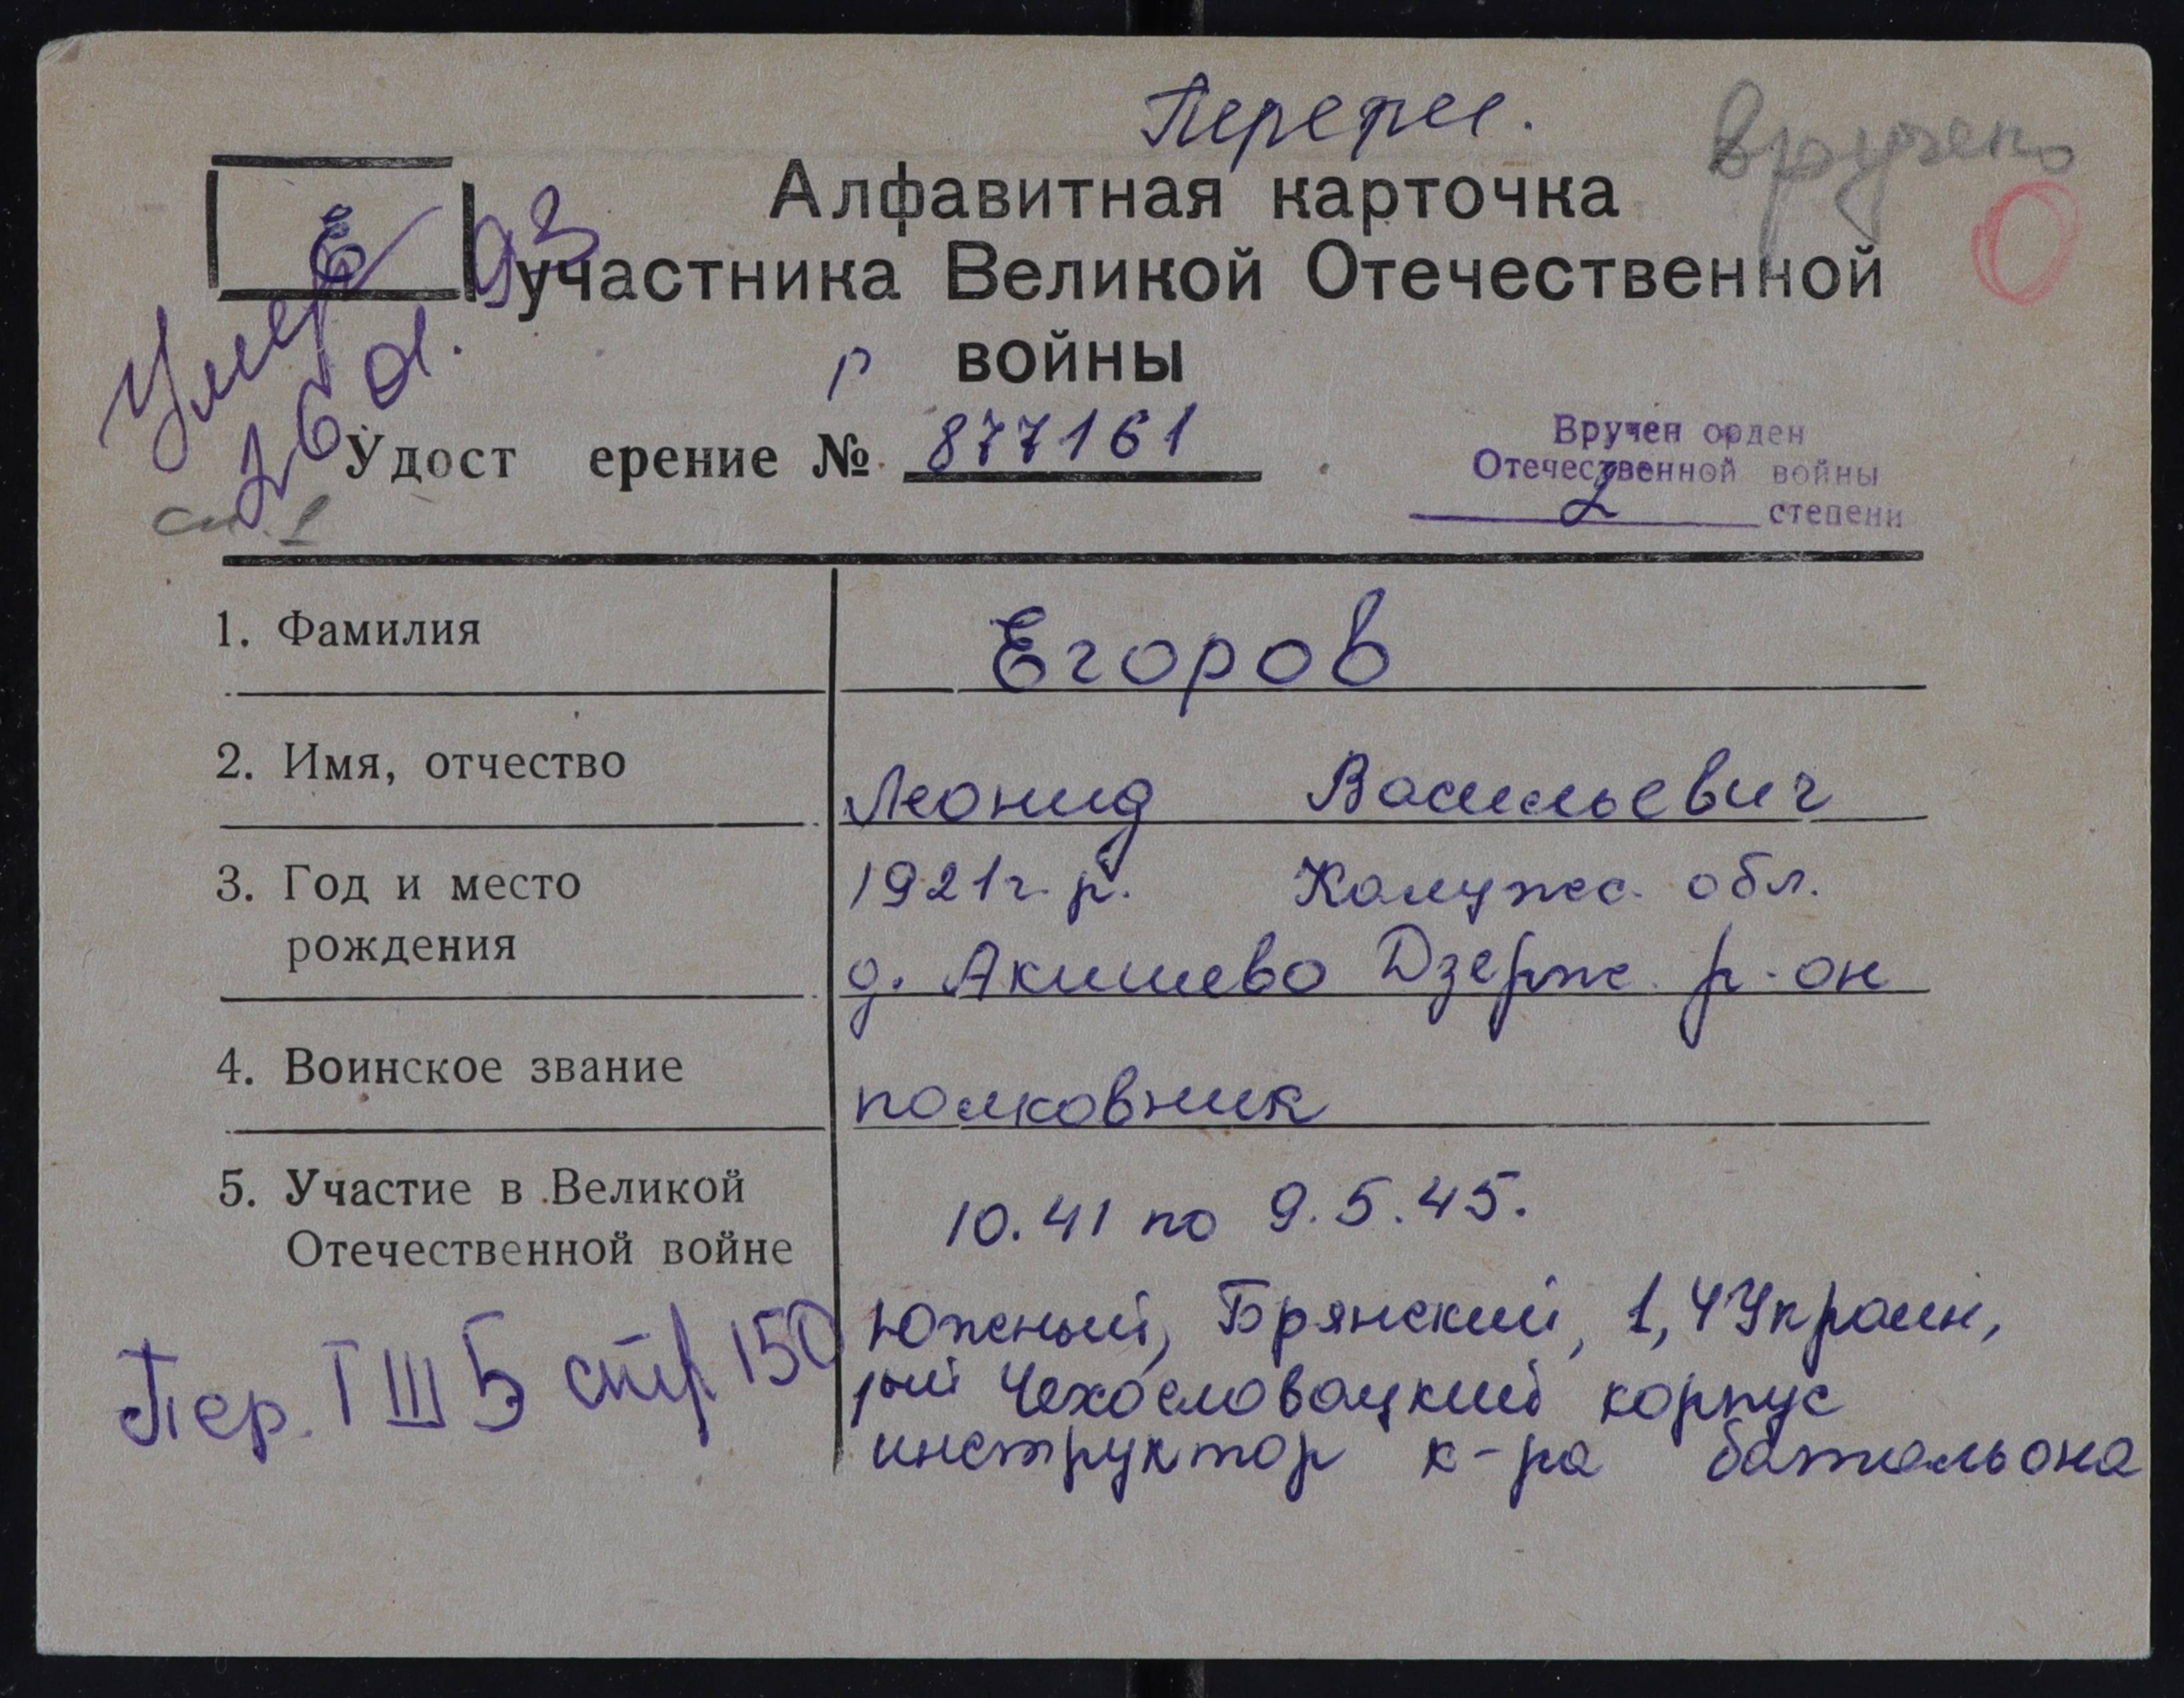 Вручено
Алфавитная карточка
Е
участника Великой Отечественной
войны
Умер
93
Удост ерение № 877161
Вручен орден
Отечественной войны
2 степени
1. Фамилия Егоров
2. Имя, отчество Леонид Васильевич
3. Год и место 1921 г. р. Калужс. обл.
рождения д. Акишево Дзерж. р-он
4. Воинское звание полковник
5. Участие в Великой 10.41 по 9.5.45.
Отечественной войне
Южный, Брянский, 1, 4 Украин,
1ый Чехословацкий корпус
инструктор к-ра батальона
Пер. Т III Б стр 150